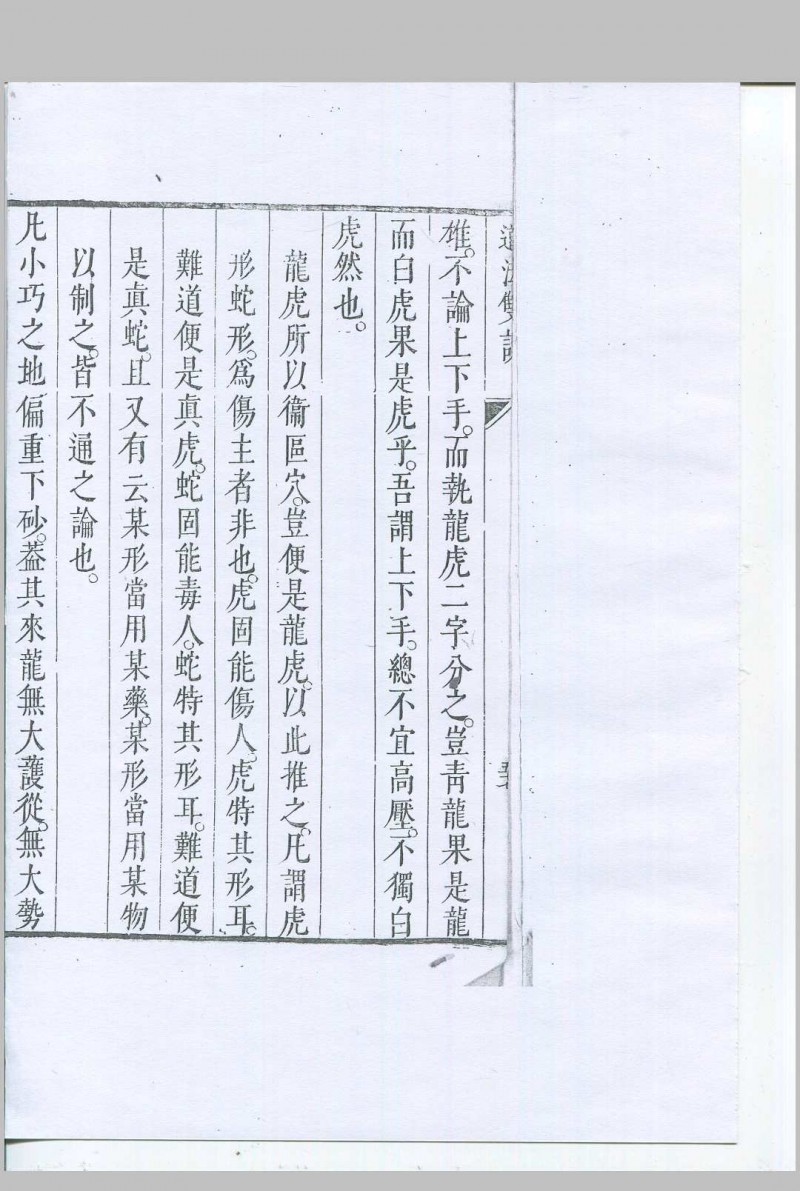 道法雙譚
雄。不論上下手。而執龍虎二字分之。豈青龍果是龍
而白虎果是虎乎。吾謂上下手。總不宜高壓。不獨白
虎然也。
龍虎所以衞區穴。豈便是龍虎。以此推之。凡謂虎
形蛇形。爲傷主者非也。虎固能傷人。虎特其形耳。
難道便是眞虎。蛇固能毒人。蛇特其形耳。難道便
是眞蛇。且又有云某形當用某藥。某形當用某物
以制之。皆不通之論也。
凡小巧之地偏重下砂。葢其來龍無大護從。無大勢